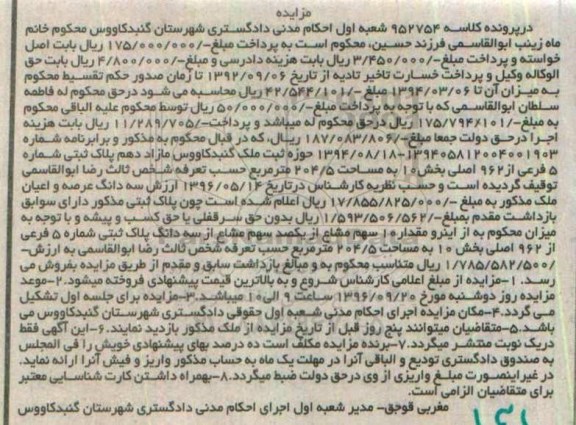 مزایده
درپرونده کلاسه ۹۵۲۷۵۴ شعبه اول احکام مدنی دادگستری شهرستان گنبدکاووس محکوم خانم
ماه زینب ابوالقاسمی فرزند حسین، محکوم است به پرداخت مبلغ-/۱۷۵/۰۰۰/۰۰۰ ریال بابت اصل
خواسته و پرداخت مبلغ-/۳/۴۵۰/۰۰۰ ریال بابت هزینه دادرسی و مبلغ-/۴/۸۰۰/۰۰۰ ریال بابت حق
الوکاله وکیل و پرداخت خسارت تاخیر تادیه از تاریخ ۱۳۹۲/۰۹/۰۶ تا زمان صدور حکم تقسیط محکوم
به میزان آن تا ۱۳۹۴/۰۳/۰۶ مبلغ-/۴۲/۵۴۴/۱۰۱ ریال محاسبه می شود درحق محکوم له فاطمه
سلطان ابوالقاسمی که با توجه به پرداخت مبلغ-/۵۰/۰۰۰/۰۰۰ ریال توسط محکوم علیه الباقی محکوم
به مبلغ-/۱۷۵/۷۹۴/۱۰۱ ریال درحق محکوم له میباشد و پرداخت-/۱۱/۲۸۹/۷۰۵ ریال بابت هزینه
اجرا درحق دولت جمعا مبلغ-/۱۸۷/۰۸۳/۸۰۶ ریال، که در قبال محکوم به مذکور و برابرنامه شماره
۱۳۹۴۰۵۸۱۲۰۰۴۰۰۱۹۰۳-۱۳۹۴/۰۸/۱۸ حوزه ثبت ملک گنبدکاووس مازاد دهم پلاک ثبتی شماره
۵ فرعی از۹۶۲ اصلی بخش۱۰ به مساحت ۲۰۴/۵ مترمربع حسب تعرفه شخص ثالث رضا ابوالقاسمی
توقیف گردیده است و حسب نظریه کارشناس درتاریخ ۱۳۹۶/۰۵/۱۴ ارزش سه دانگ عرصه و اعیان
ملک مذکور به مبلغ -/۱۷/۸۵۵/۸۲۵/۰۰۰ ریال اعلام شده است چون پلاک ثبتی مذکور دارای سوابق
بازداشت مقدم بمبلغ-/۱/۵۹۳/۵۰۶/۵۶۲ ریال بدون حق سرقفلی یا حق کسب و پیشه و با توجه به
میزان محکوم به از اینرو مقدار۱۰ سهم مشاع از یکصد سهم مشاع از سه دانگ پلاک ثبتی شماره ۵ فرعی
از ۹۶۲ اصلی بخش ۱۰ به مساحت ۲۰۴/۵ مترمربع حسب تعرفه شخص ثالث رضا ابوالقاسمی به ارزش-
/۱/۷۸۵/۵۸۲/۵۰۰ ریال متناسب محکوم به و مبالغ بازداشت سابق و مقدم از طریق مزایده بفروش می
رسد. ۱-مزایده از مبلغ اعلامی کارشناس شروع و به بالاترین قیمت پیشنهادی فروخته میشود.۲-موعد
مزایده روز دوشنبه مورخ ۱۳۹۶/۰۹/۲۰ ساعت ۹ الی۱۰ میباشد.۳-مزایده برای جلسه اول تشکیل
می گردد.۴-مکان مزایده اجرای احکام مدنی شعبه اول حقوقی دادگستری شهرستان گنبدکاووس می
باشد.۵-متقاضیان میتوانند پنج روز قبل از تاریخ مزایده از ملک مذکور بازدید نمایند.۶-این آگهی فقط
دریک نوبت منتشر میگردد.۷-برنده مزایده مکلف است ده درصد بهای پیشنهادی خویش را فی المجلس
به صندوق دادگستری تودیع و الباقی آنرا در مهلت یک ماه به حساب مذکور واریز و فیش آنرا ارائه نماید.
در غیراینصورت مبلغ واریزی از وی درحق دولت ضبط میگردد.۸-بهمراه داشتن کارت شناسایی معتبر
برای متقاضیان الزامی است.
مغربی قوجق- مدیر شعبه اول اجرای احکام مدنی دادگستری شهرستان گنبدکاووس